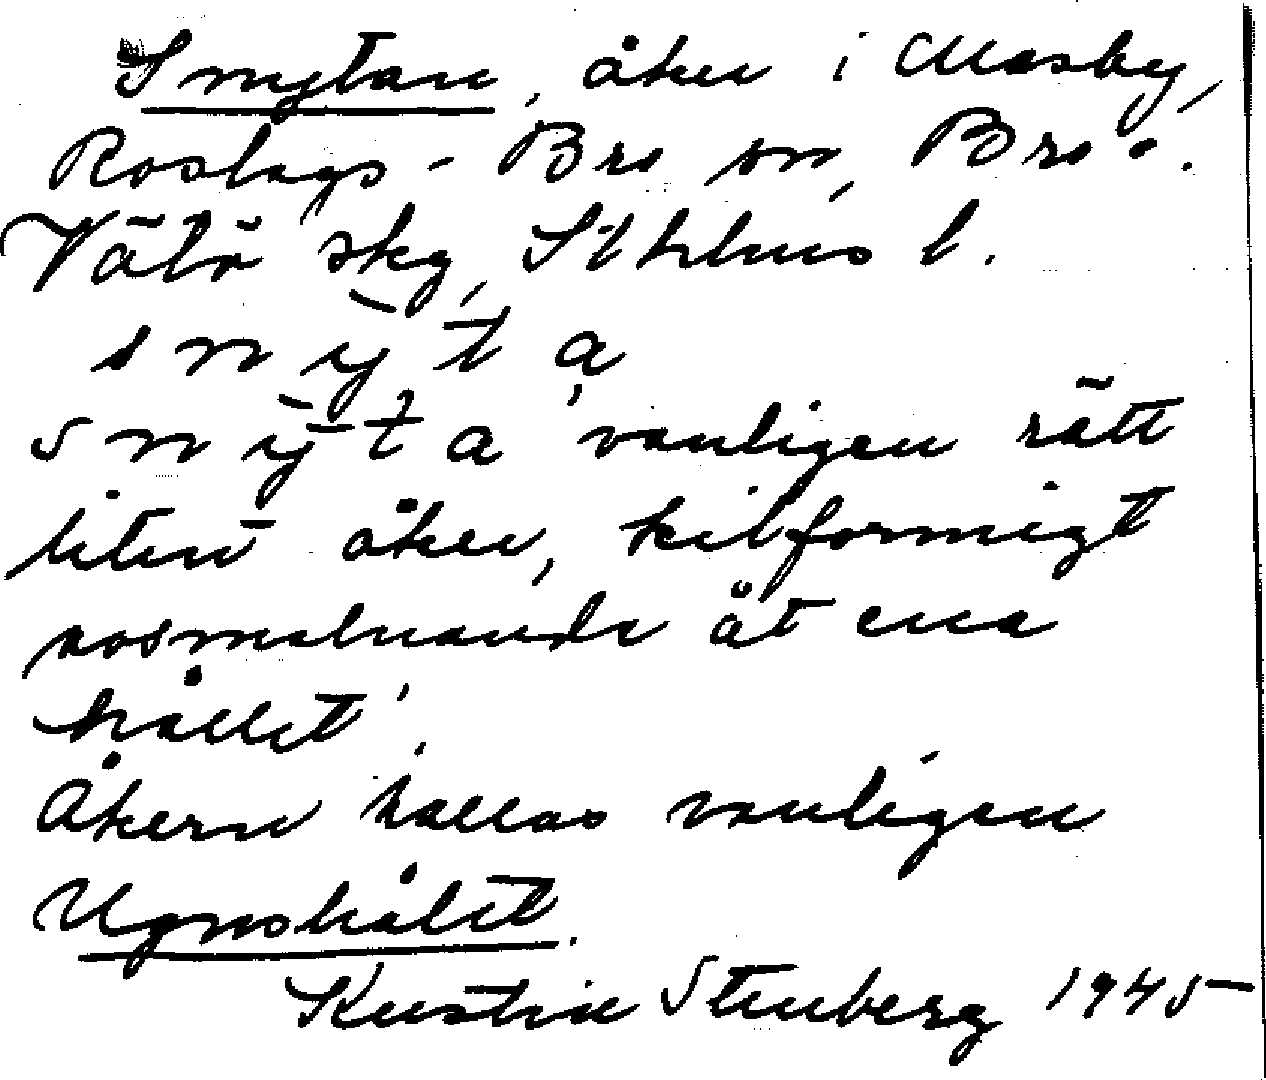 Snytan, åker i Masby,
Roslags-Bro sn, Bro o.
Vätö skg, Sthlms l.
s n ỳ t a
s n ỳ t a 'vanligen rätt
liten åker, kilformigt
avsmalnande åt ena
hållet'.
Åkern kallas vanligen
Ugnshålet.
Kerstin Stenberg 1945